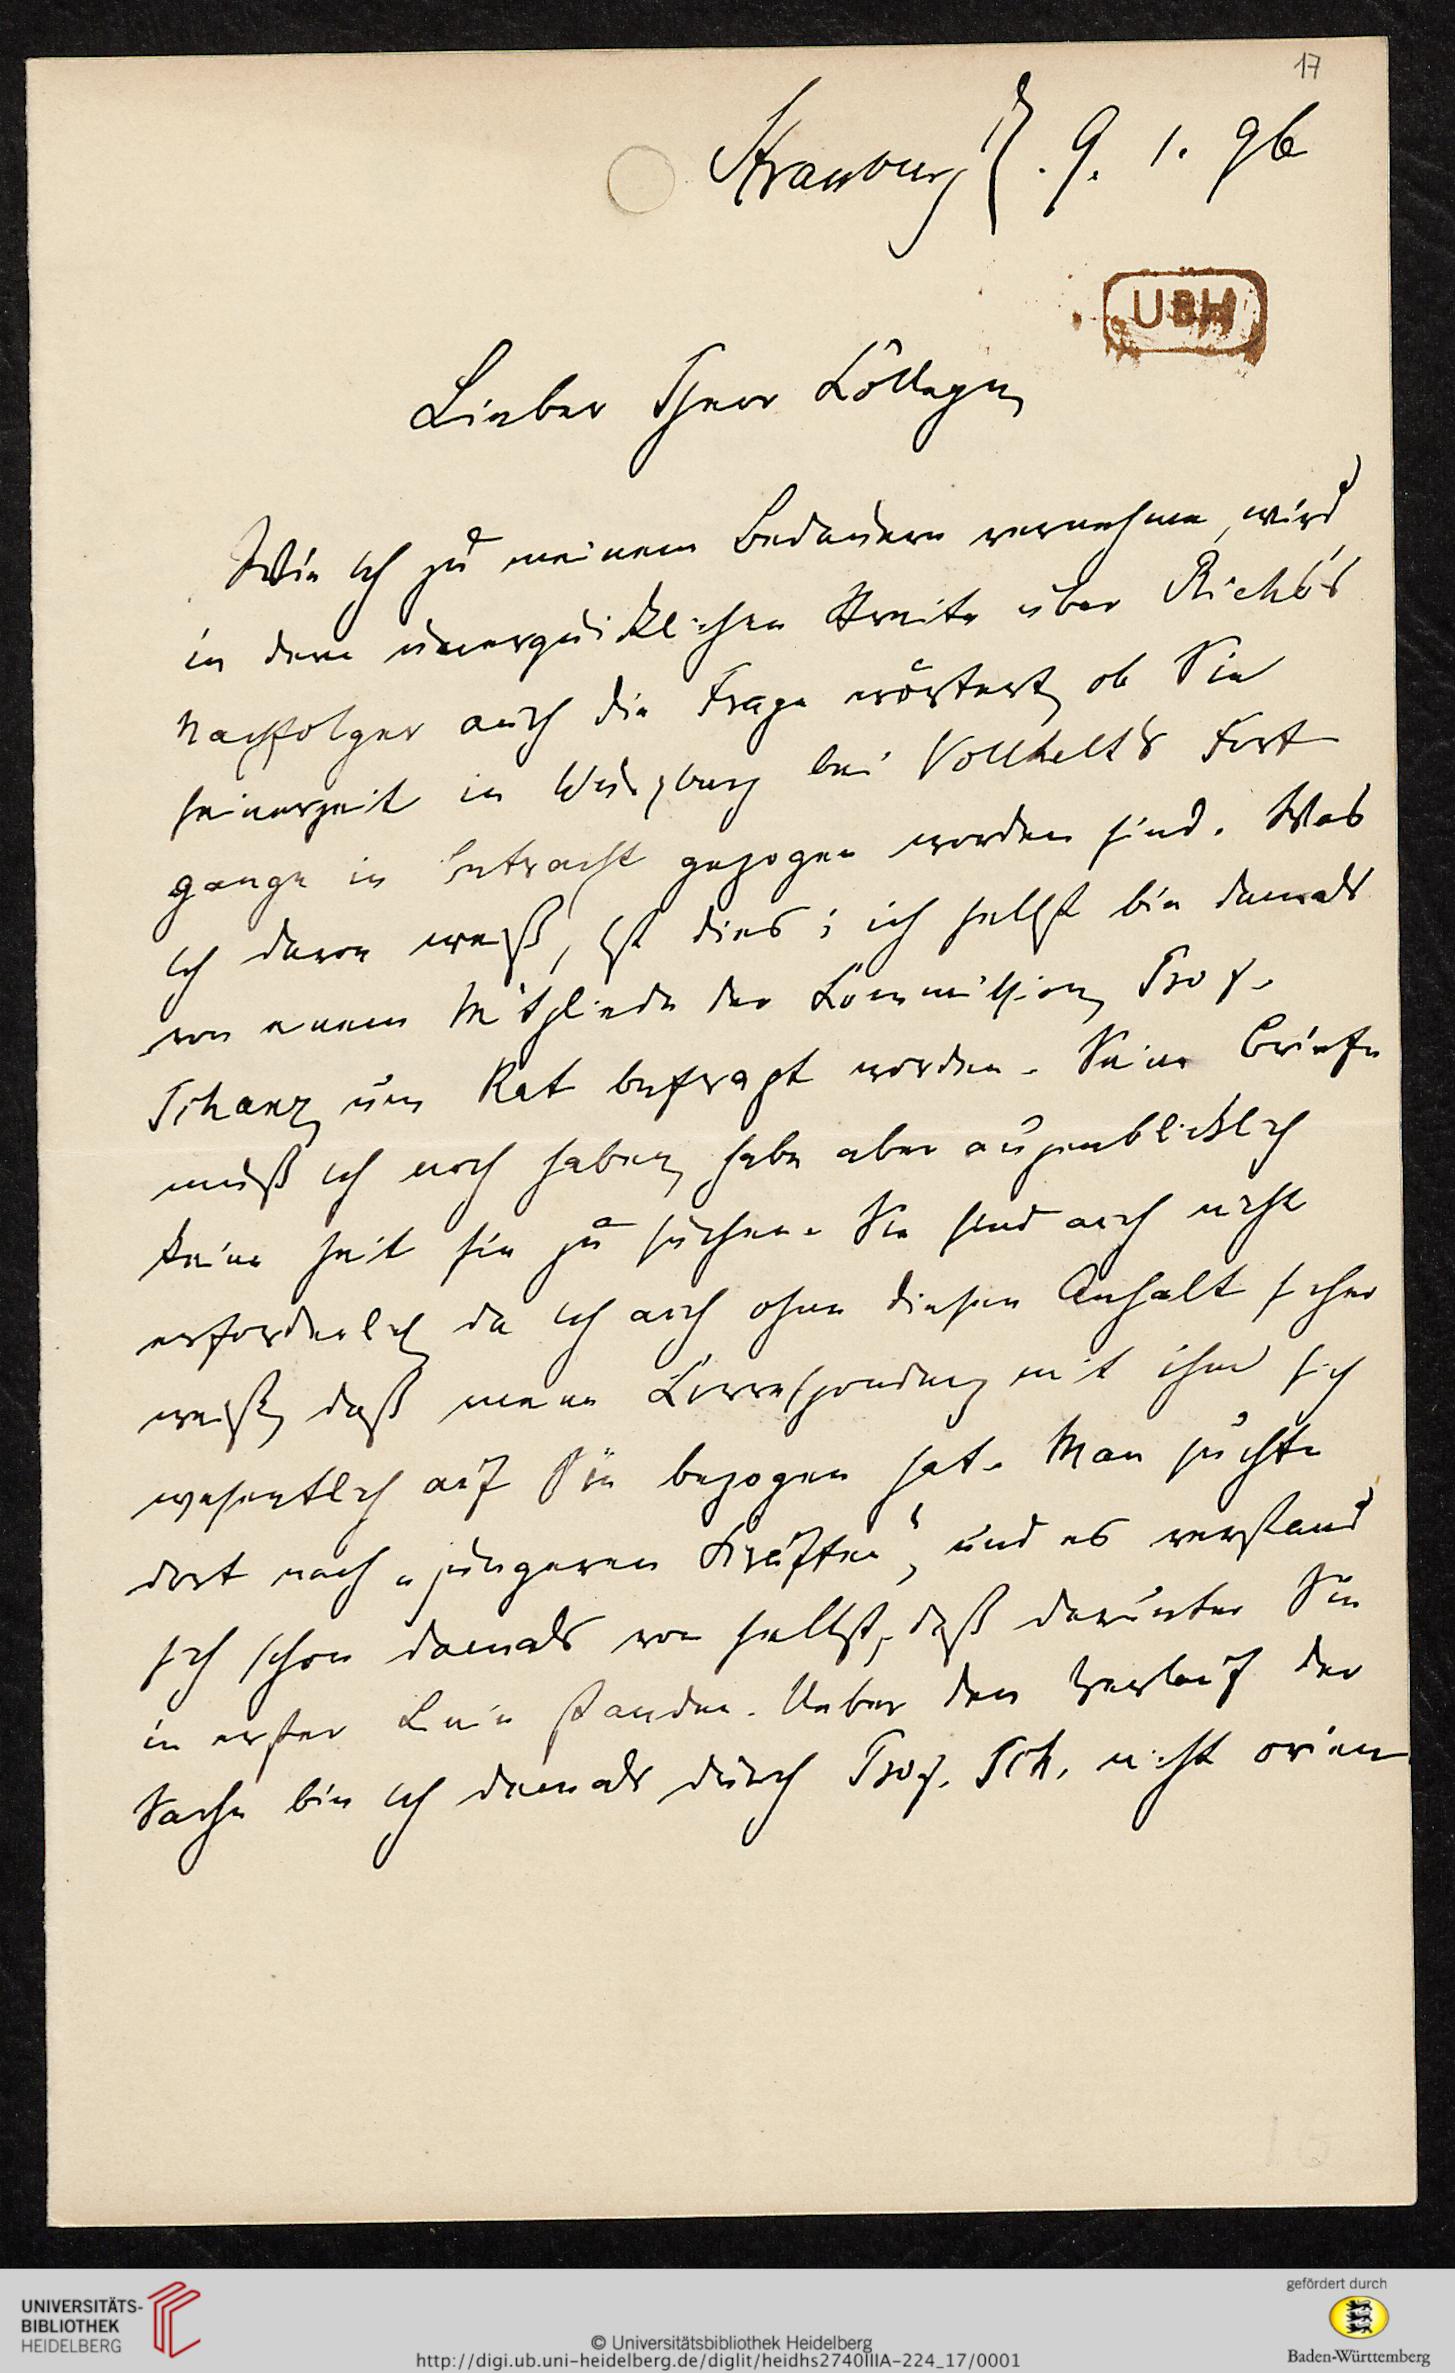 17
Strassburg d. 9. 1. 96
UBH
Lieber Herr Kollege,
Wie ich zu meinem Bedauern vernehme, wird
in dem unerquicklichen Streite über Riehl's
Nachfolger auch die Frage erörtert, ob Sie
seinerzeit in Würzburg bei Volkelt's Fort
gange in Betracht gezogen worden sind. Was
ich davon weiß, ist dies; ich selbst bin damals
von einem Mitgliede der Kommission, Prof.
Schanz, um Rat befragt worden. Seine Briefe
muß ich noch haben, habe aber augenblicklich
keine Zeit sie zu suchen. Sie sind auch nicht
erforderlich, da ich auch ohne diesen Anhalt sicher
weiß, daß meine Korrespondenz mit ihm sich
wesentlich auf Sie bezogen hat. Man suchte
dort nach „jüngeren Kräften", und es verstand
sich schon damals von selbst, daß darunter Sie
in erster Linie standen. Ueber den Verlauf der
Sache bin ich damals durch Prof. Sch. nicht orien
UNIVERSITÄTS-
BIBLIOTHEK
HEIDELBERG
© Universitätsbibliothek Heidelberg
http://digi.ub.uni-heidelberg.de/diglit/heidhs2740IIIA-224_17/0001
gefördert durch
Baden-Württemberg